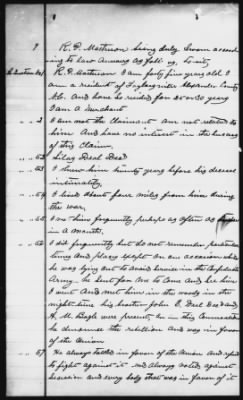 R. P. Matheson being duly Sworn accord
ing to law answers as follows, to wit,
R. P. Matheson I am forty five years old I
am a resident of Taylorsville Alexander County
N.C. and have resided for 25 or 30 years
I am a Merchant
" " 2 I am not the Claimant am not related to
him and have no interest in the success
of this Claim,
" " 52 Silas Deal Dec'd
" " 53 I knew him twenty years before his decease
intimately,
" " 54 I lived about four miles from him during
the war,
I saw him frequently perhaps as often as
in a month.
I did frequently but do not remember particular
times and place except on one occasion while
he was lying out to avoid service in the Confederate
Army he sent for me to come and see him
I went and met him in the woods in the
night time his brother John E. Deal Dec'd and
A. M. Bogle were present, in this Conversation
he denounced the rebellion and was in favor
of the Union
" " 57 He always talked in favor of the Union and
to fight against it and always voted against
secession and every body that was in favor of it